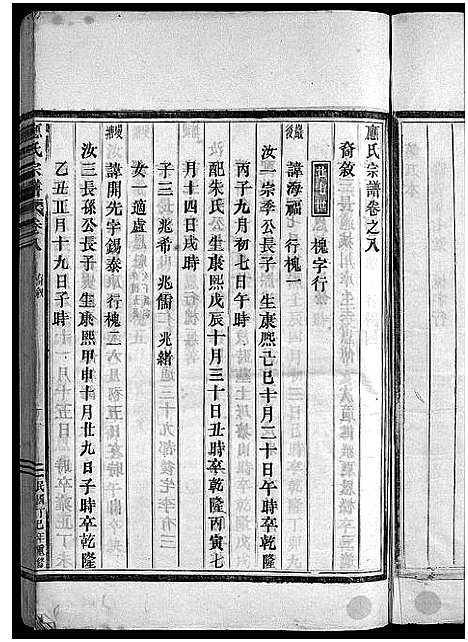 應氏宗譜卷之八
裔敘
槐字行
嚴後
諱海福 行槐一
汝一宗季公長子 生康熙己巳十月三十日午時卒乾隆
丙子九月初七日午時
配朱氏 生康熙戊辰十月三十日丑時卒乾隆丙寅七
月十四日戌時
子三 兆希 兆儒 兆緒
女一適盧
諱開先字錫泰 行槐二
汝三長孫公長子 生康熙甲申十月廿九日子時卒乾隆
乙丑正月十九日子時
應氏宗譜 卷八 裔敘
民國丁巳年重修